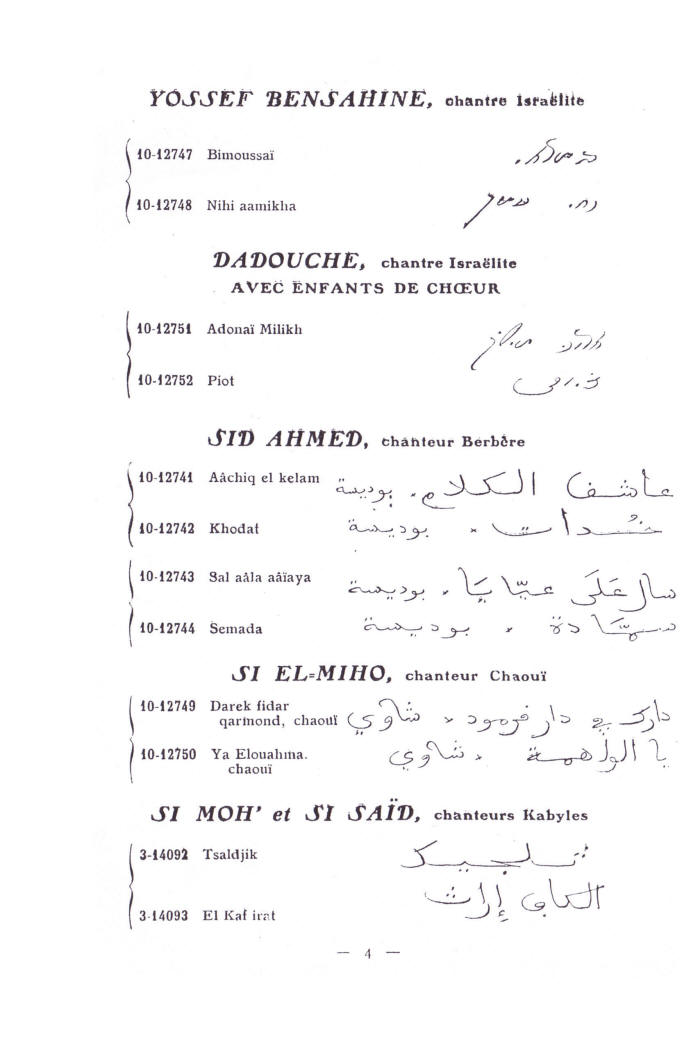 YOSSEF BENSAHINE, chantre Israëlite
10-12747 Bimoussaï
10-12748 Nihi aamikha
DADOUCHE, chantre Israëlite
AVEC ENFANTS DE CHŒUR
10-12751 Adonaï Milikh
10-12752 Piot
SID AHMED, chanteur Berbère
10-12741 Aâchiq el kelam عاشق الكلام . بوديسة
10-12742 Khodat بوديسة
10-12743 Sal aâla aâïaya سال عَلَى عيّايَا . بوديسة
10-12744 Semada سمّادة . بوديسة
SI EL=MIHO, chanteur Chaouï
10-12749 Darek fidar
qarmond, chaouï دارك في دار قرمود . شاوي
10-12750 Ya Elouahma. يا الولهمة . شاوي
chaouï
SI MOH' et SI SAÏD, chanteurs Kabyles
3-14092 Tsaldjik ثلجيك
3-14093 El Kaf irat الكاف إراث
— 4 —